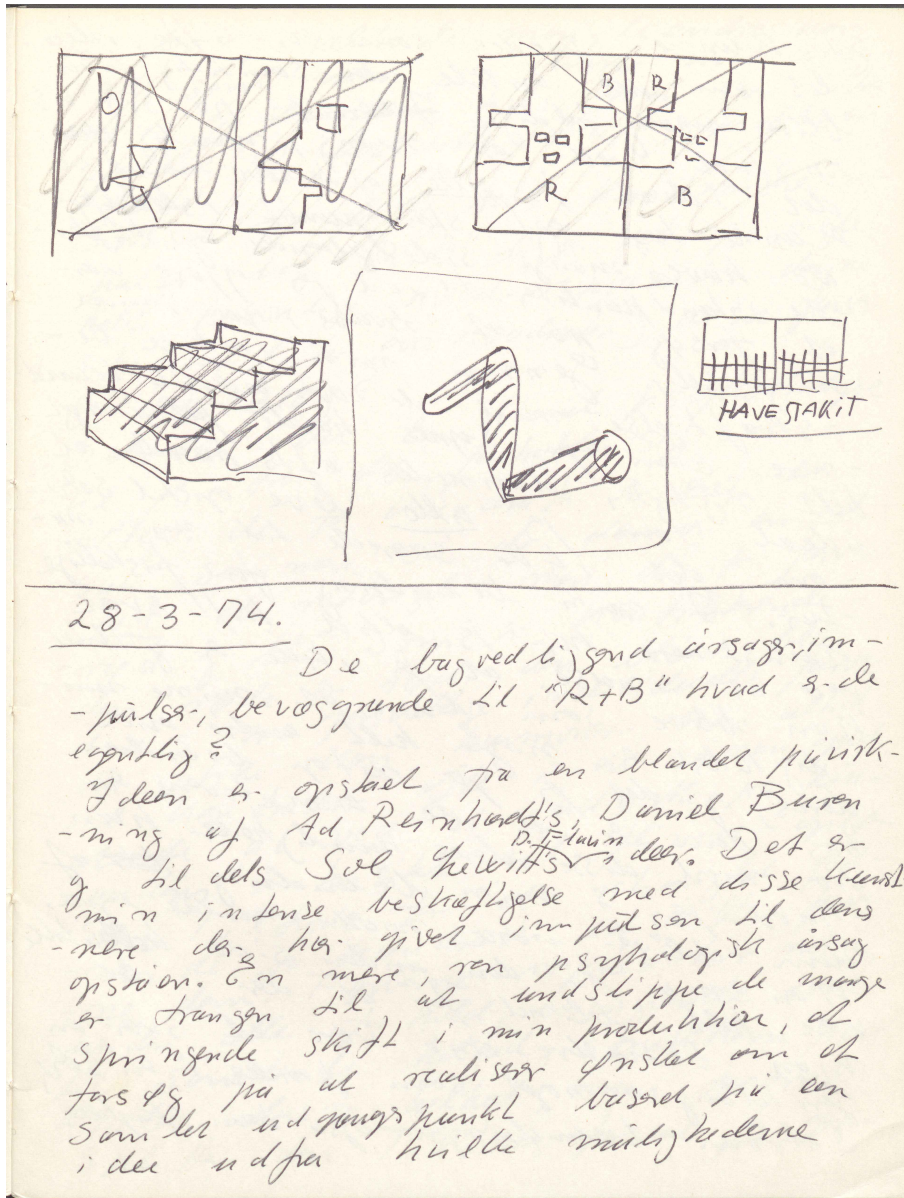 B R
R B
HAVESTAKIT
28-3-74.
De bagvedliggend årsager, im-
-pulser, bevæggrunde til "R+B" hvad er de
egentlig?
Ideen er opstået fra en blandet påvirk-
-ning af Ad Reinhardt's, Daniel Buren
D. Flavin
og til dels Sol Lewitt's ideer. Det er
min intense beskæftigelse med disse kunst
-nere der har givet impulsen til dens
opståen. En mere, ren psyhologisk årsag
er trangen til at undslippe de mange
springende skift i min produktion, et
forsøg på at realiserer ønsket om et
samlet udgangspunkt baseret på een
idee udfra hvilke mulighederne